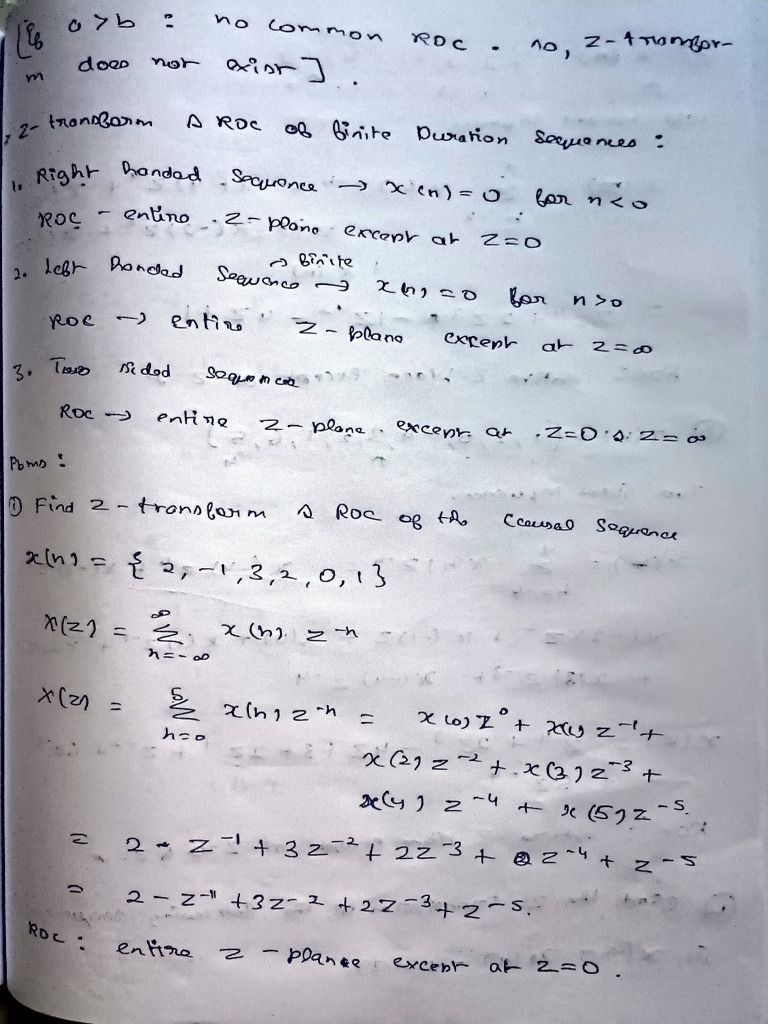 [If a>b : no common ROC . so, z-transfor-
m does not exist].
z-transform & ROC of finite Duration Sequences :
1. Right handed Sequence → x(n)=0 for n<0
ROC - entire z-plane except at z=0
→ finite
2. Left handed Sequence → x(n)=0 for n>0
ROC → entire z-plane except at z=∞
3. Two sided sequences
ROC → entire z-plane except at z=0 & z=∞
Pbms :
① Find z-transform & ROC of the causal Sequence
x(n) = { 2, -1, 3, 2, 0, 1 }
X(z) = ∞ Σ n=-∞ x(n) z^-n
X(z) = 5 Σ n=0 x(n) z^-n = x(0) z^0 + x(1) z^-1 +
x(2) z^-2 + x(3) z^-3 +
x(4) z^-4 + x(5) z^-5.
= 2 - z^-1 + 3z^-2 + 2z^-3 + 0 z^-4 + z^-5
= 2 - z^-1 + 3z^-2 + 2z^-3 + z^-5.
ROC : entire z-plane except at z=0.